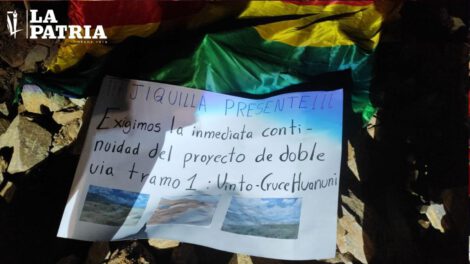 LA
PATRIA
JIQUILLA PRESENTE!!!
Exigimos la inmediata conti-
nuidad del proyecto de doble
via tramo 1: Vinto-Cruce Huanuni